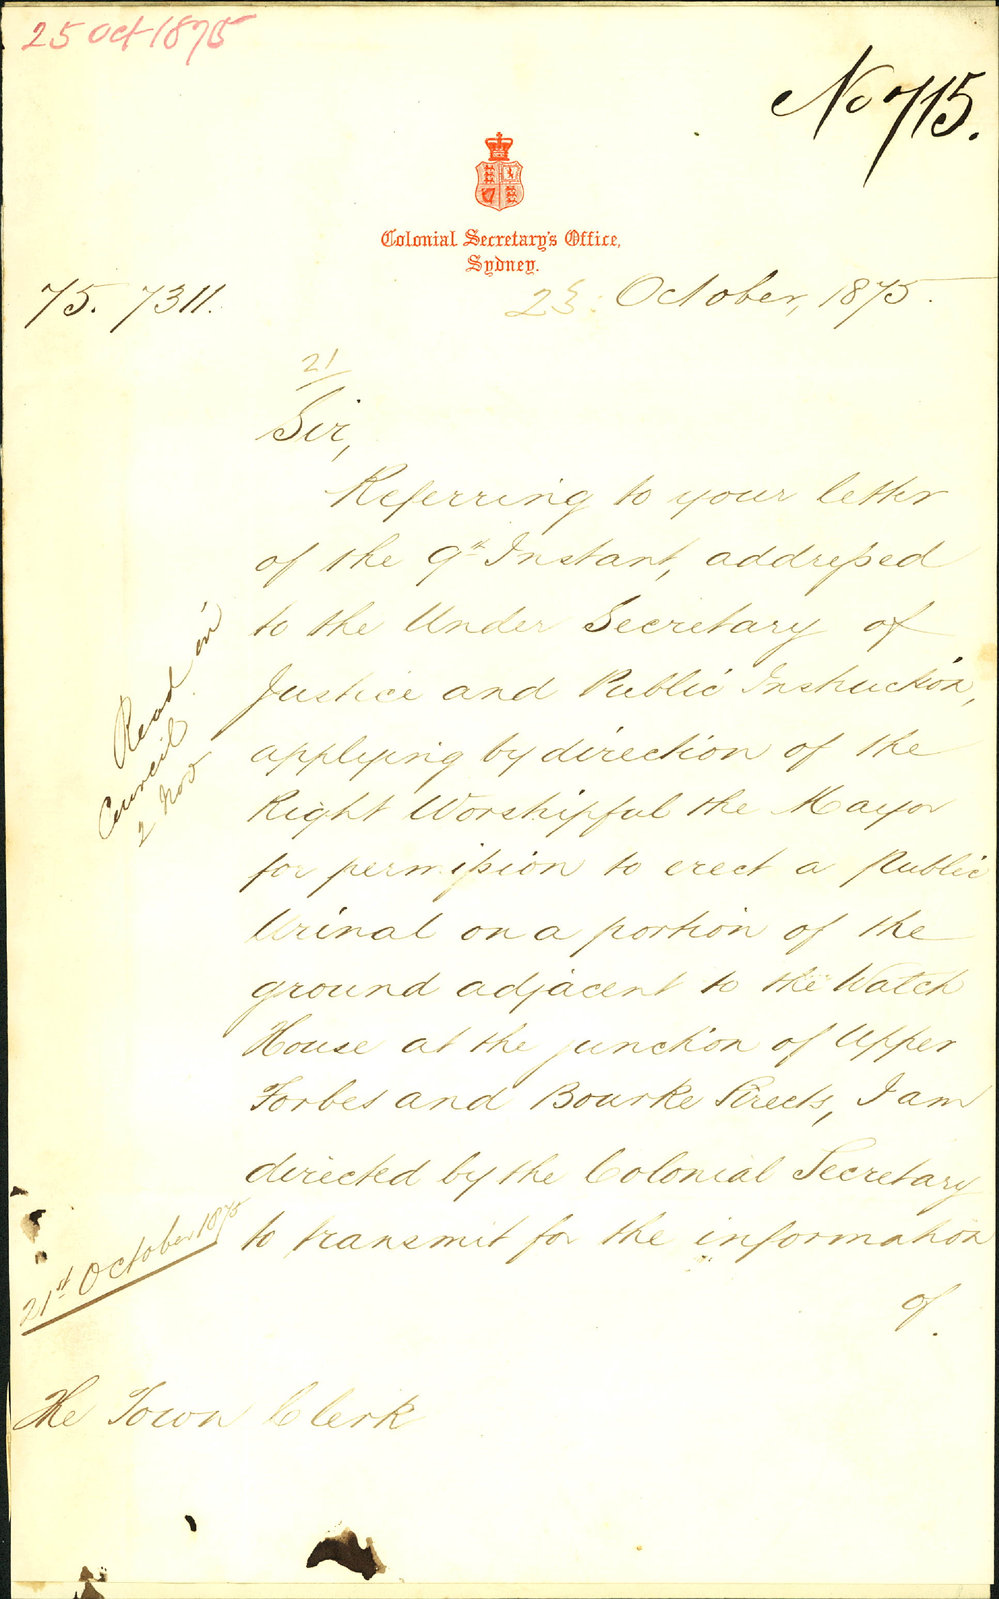 25 Oct 1875
No 715.
Colonial Secretary's Office,
Sydney.
75. 7311.
23. October, 1875.
21
Sir,
Referring to your letter
of the 9th Instant, addressed
to the Under Secretary of
Justice and Public Instruction,
applying by direction of the
Right Worshipful the Mayor
for permission to erect a Public
Urinal on a portion of the
ground adjacent to the Watch
House at the junction of Upper
Forbes and Bourke Streets, I am
directed by the Colonial Secretary
to transmit for the information
of.
Read in
Council
2 Nov
21st October 1875
The Town Clerk